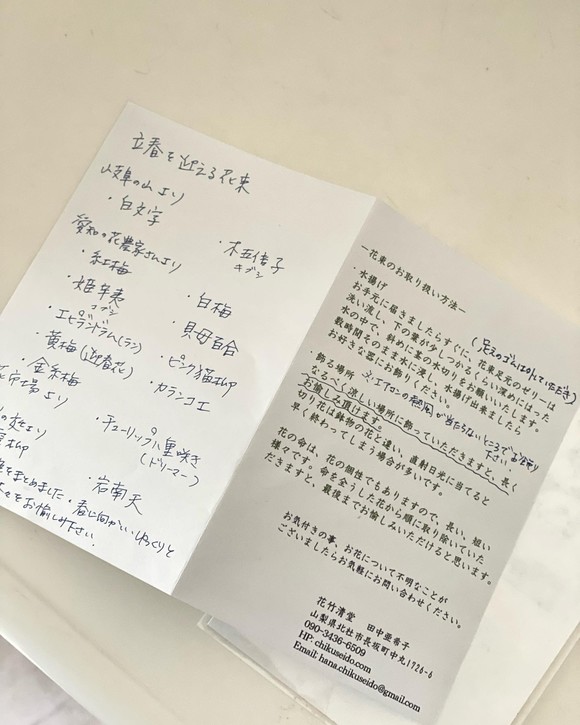 立春を迎える花束
岐阜の山より
・白文字
・木五倍子
キブシ
愛知の花農家さんより
・紅梅
・白梅
・姫辛夷
コブシ
・貝母百合
・エピデンドラム(ラン)
・ピンク猫柳
・黄梅(迎春花)
・カランコエ
・金糸梅
市場より
・チューリップ八重咲き
(ドリーマー)
より
柳
・岩南天
をまとめました。春に向かい、ゆっくりと
をお愉しみ下さい。
―花束のお取り扱い方法―
・水揚げ
お手元に届きましたらすぐに、花束足元のゼリーは
(足元のゴムは外していただき)
洗い流し、下の葉が少しつかるくらい深めにはった
水の中で、斜めに茎の水切りをお願いいたします。
数時間そのまま水に浸し、水揚げ出来ましたら
お好きな器にお飾りください。
・飾る場所 ※エアコンの熱風が当たらないところでお飾り
下さい。
なるべく涼しい場所に飾っていただきますと、長く
お愉しみ頂けます。
切り花は鉢物の花と違い、直射日光に当てると
早く終わってしまう場合が多いです。
花の命は、花の個性でもありますので、長い、短い
様々です。命を全うした花から順に取り除いていた
だきますと、最後までお愉しみいただけると思います。
お気付きの事、お花について不明なことが
ございましたらお気軽にお問い合わせください。
花竹清堂 田中亜希子
山梨県北杜市長坂町中丸1726-6
090-3436-6509
HP: chikuseido.com
Email: hana.chikuseido@gmail.com